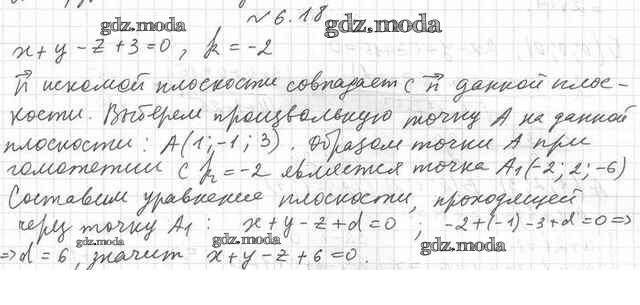 № 6.18
gdz.moda gdz.moda
x + y - z + 3 = 0 , k = -2
n⃗ искомой плоскости совпадает с n⃗ данной плос-
кости. Выберем произвольную точку A на данной
плоскости : A(1; -1; 3) . Образом точки A при
гомотетии с k = -2 является точка A₁(-2; 2; -6)
Составим уравнение плоскости, проходящей
через точку A₁ : x + y - z + d = 0 ; -2 + (-1) - 3 + d = 0 =>
gdz.moda gdz.moda gdz.moda
=> d = 6, значит x + y - z + 6 = 0 .